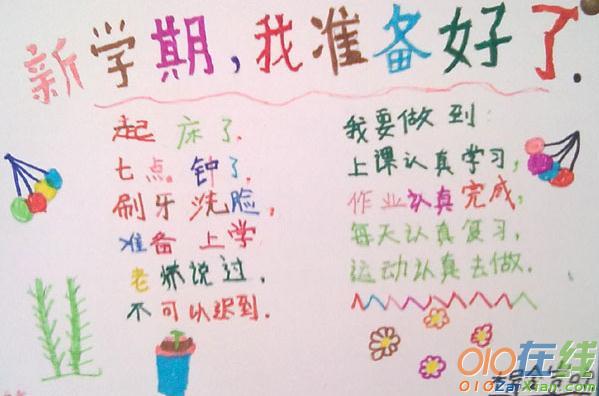 新学期,我准备好了.
起床了.
七点.钟了.
刷牙洗脸,
准备上学
老师说过.
不可以迟到.
我要做到:
上课认真学习,
作业认真完成,
每天认真复习,
运动认真去做.
010在线
010zaixian.com